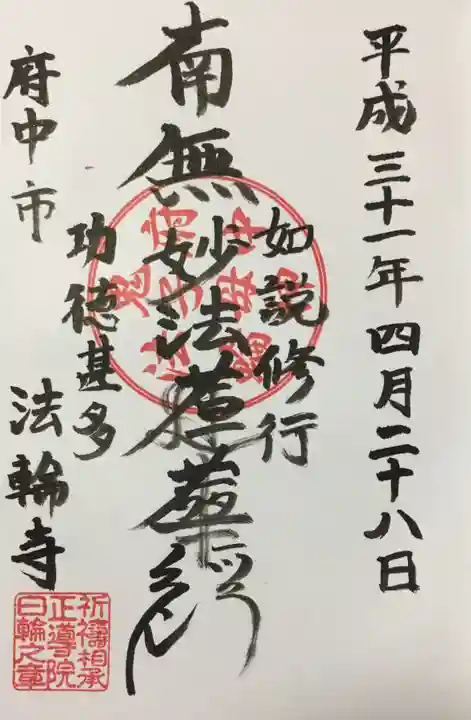 平成三十一年四月二十八日
如説修行
南無妙法蓮華経
功徳甚多
府中市 法輪寺
祈祷相承
正導院
日輪之章